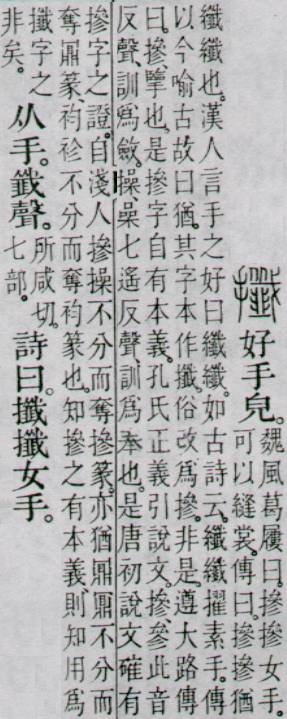 攕 好手皃。
魏風葛屨曰。摻摻女手。
可以縫裳。傳曰。摻摻猶
纖纖也。漢人言手之好曰纖纖。如古詩云。纖纖擢素手。傳
以今喻古故曰猶。其字本作攕。俗改爲摻。非是。遵大路傳
曰。摻、擥也。是摻字自有本義。孔氏正義引說文。摻、參此音
反聲、訓爲斂。操、喿七遙反聲、訓爲奉也。是唐初說文確有
摻字之證。自淺人摻操不分而奪摻篆。亦猶鼏鼏不分而
奪鼏篆、袀袗不分而奪袀篆也。知摻之有本義、則知用爲
攕字之
非矣。
从手。韱聲。
所咸切。
七部。
詩曰。攕攕女手。